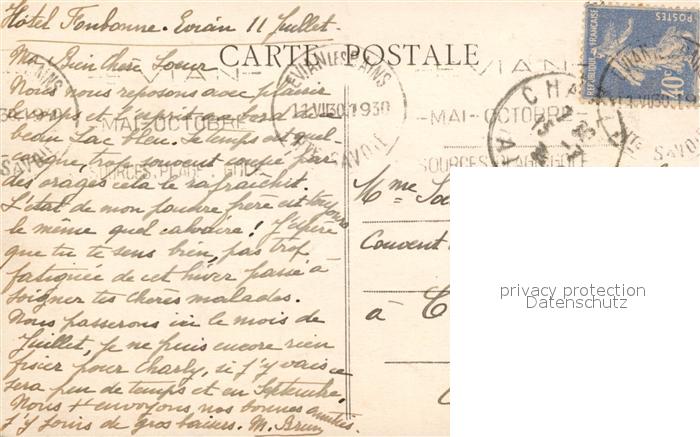 Hôtel Fonbonne. Evian 11 Juillet.
Ma Bien Chère Soeur
CARTE POSTALE
Nous nous reposons avec plaisir
le corps et l'esprit au bord de ce
beau Lac bleu. Le temps est quel-
conque, trop souvent coupé par
des orages cela le rafraîchit.
L'état de mon pauvre frère est toujours
le même quel calvaire! J'espère
que tu te sens bien, pas trop
fatiguée de cet hiver passé à
soigner tes chères malades.
Nous passerons ici le mois de
Juillet, je ne puis encore rien
fixer pour Charly, si j'y vais ce
sera peu de temps et en Septembre.
Nous t'envoyons nos bonnes amitiés.
J'y joins de gros baisers. M. Brun
EVIAN LES BAINS
11 VII 30 1930
HTE SAVOIE
EVIAN
MAI-OCTOBRE
SOURCES. PLAGE. GOLF
SAVOIE
REPUBLIQUE FRANÇAISE
POSTES
40c
EVIAN
11 VII 30. 19
MAI-OCTOBRE
SOURCES. PLAGE. GOLF
HTE SAVOIE
CHA
Mme
Couvent
à
privacy protection
Datenschutz